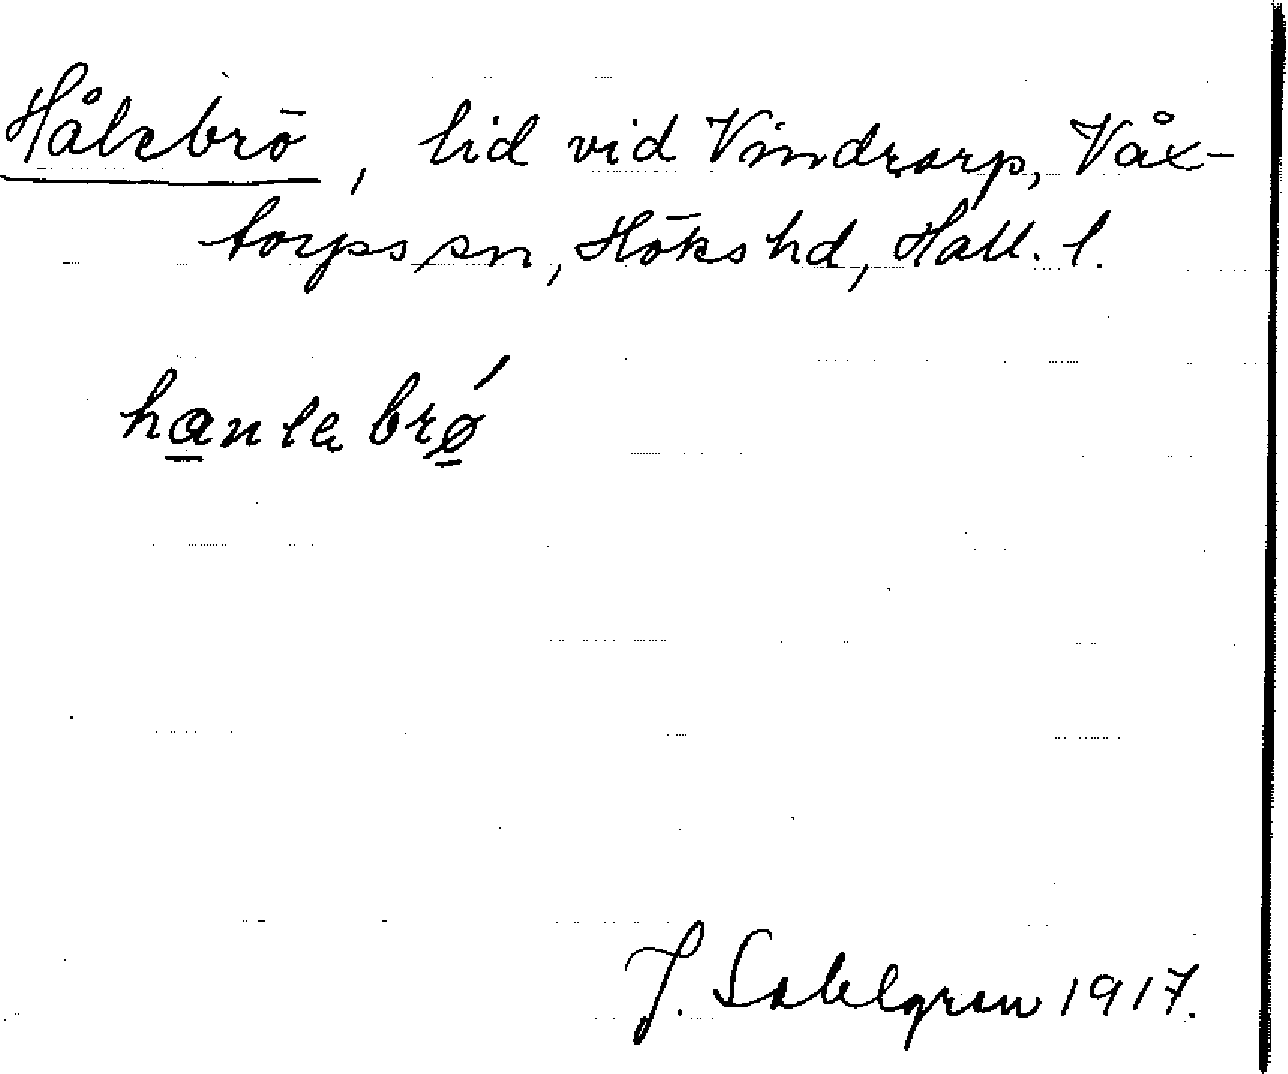 Hålebrö, lid vid Vindrarp, Våx-
torps sn, Höks hd, Hall. l.
haulabrø´
J. Sahlgren 1917.